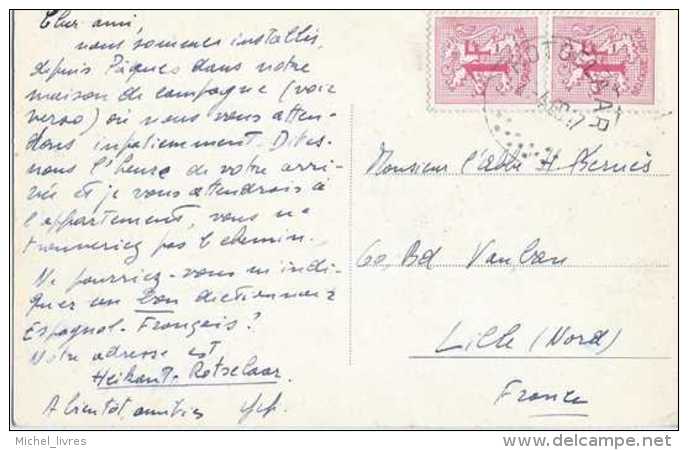 Cher ami,
nous sommes installés,
depuis Pâques dans notre
maison de campagne (voir
verso) où nous vous atten-
dons impatiemment. Dites-
nous l'heure de votre arri-
vée et je vous attendrais à
l'appartement, vous ne
trouveriez pas le chemin.
Ne pourriez-vous m'indi-
quer un bon dictionnaire
Espagnol-Français?
Notre adresse est
Heikant-Rotselaar.
A bientôt, amitiés
1F 1F
ROTSELAAR
Monsieur l'abbé H. Bernès
60, Bd Vauban
Lille (Nord)
France
Michel_livres
www.delcampe.net